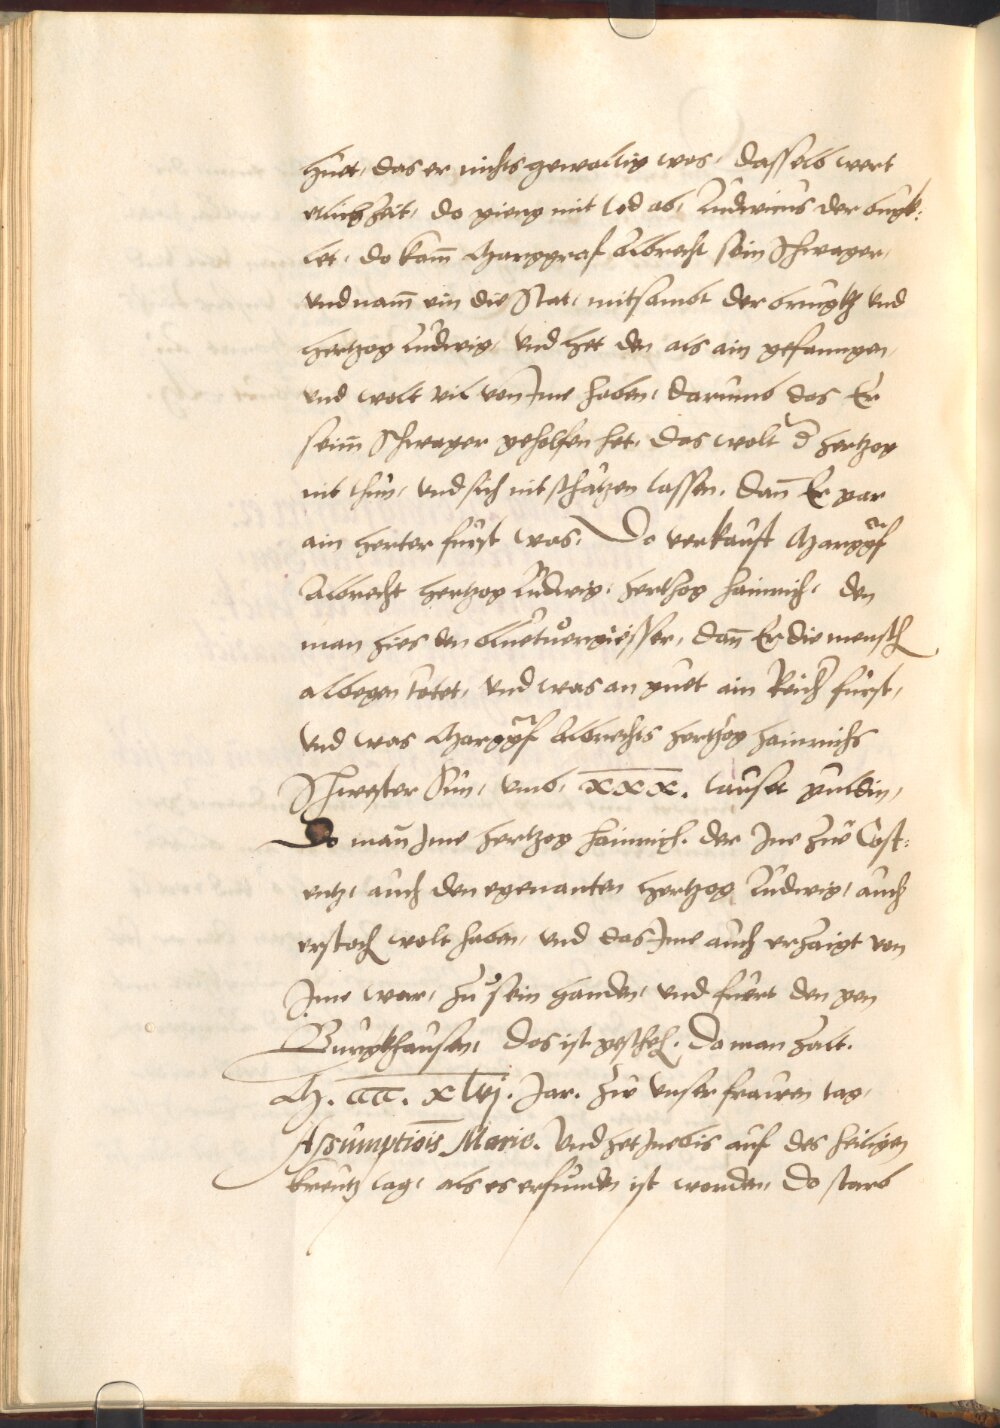 huet, das er nichts gewaltig was, dasselb wert
etlich Zeit, do gieng mit tod ab, Ludwicus der bugk-
let, do kam̄ Marggraf Albrecht sein Schwager,
vnd nam̄ ein die Stat, mitsambt der brugkh vnd
Hertzog Ludwig, vnd het den als ain gefanngen,
vnd wolt vil von Jme haben, darumb das Er
seim̄ Schwager geholfen het, das wolt d̄ Hertzog
nit thun, vnd sich nit schätzen lassen, dan̄ Er gar
ain herter fürst was, Do verkauft Marggf
Albrecht Hertzog Ludwig, herthog Hainrich, den
man hies den bluetuergiesser, dan̄ Er die mensch
albegen tötet, vnd was an guet ain Reich fürst,
vnd was Marggf Albrechts Hertzog Hainrichs
Schwester Sun, vmb, xxx. tauset guldin,
Do man̄ Jme Hertzog Hainrich. der Jne zue Cost-
entz, auch den egenanten Hertzog Ludwig, auch
erstoch wolt haben, vnd das Jme auch erzaigt von
Jme war, zu sein handen, vnd fuert den gen
Burgkhausen, das ist gescheh. Do man zalt.
M. cccc. xlvj. Jar. zue vnser frawen tag,
Assumptiois Marie. vnd het Jne bis auf des heiligen
kreutz tag, als es erfunden ist worden, Do starb